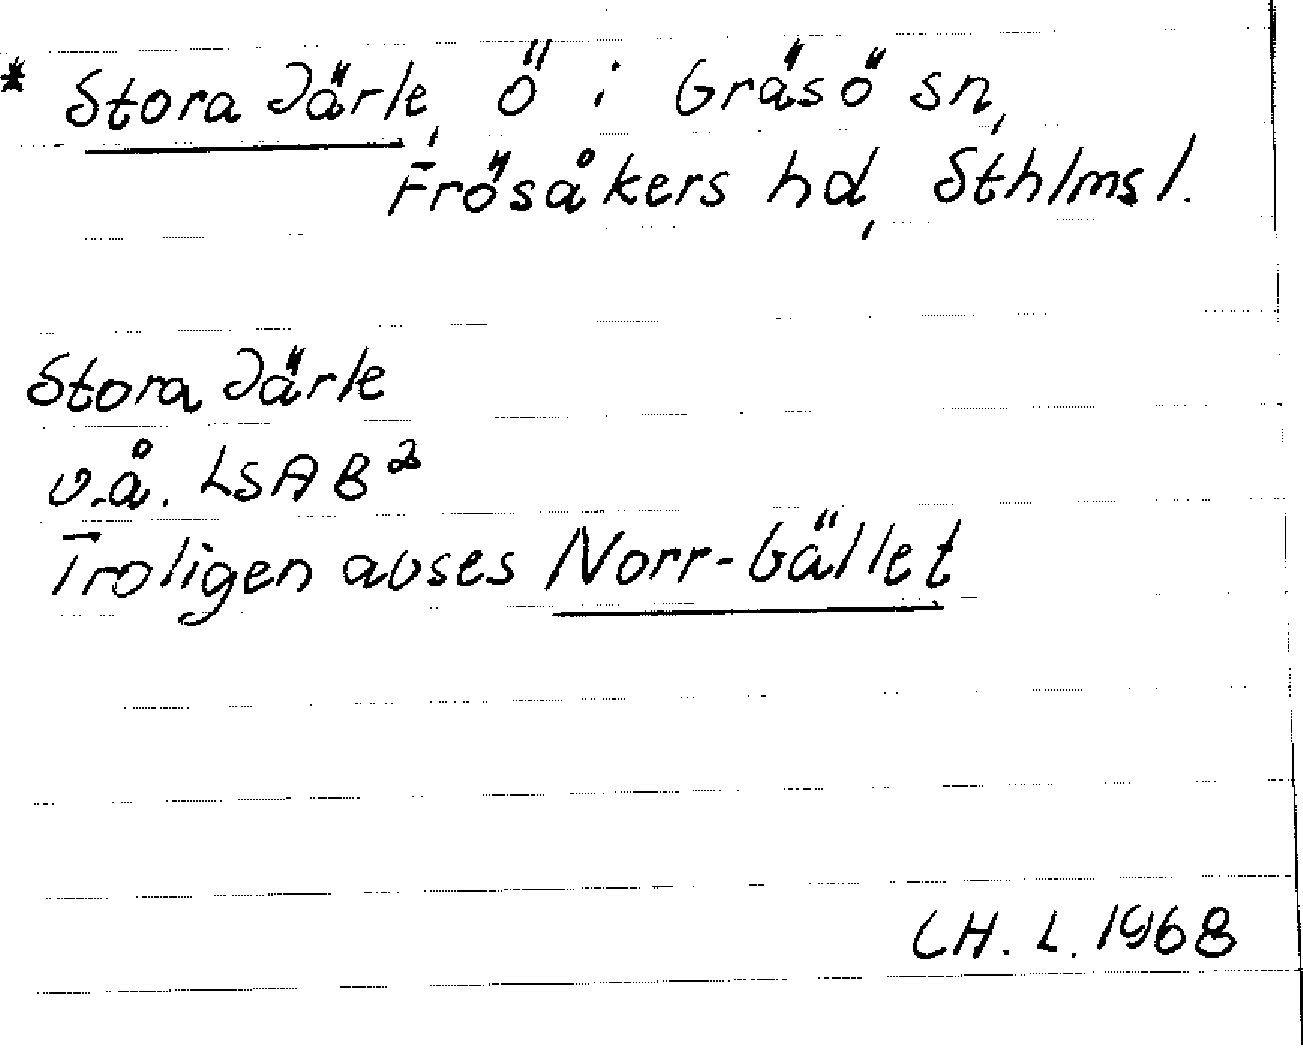 * Stora Järle, ö i Gräsö sn,
Frösåkers hd, Sthlms l.
Stora Järle
v.å. LSA B²
Troligen avses Norr-Gället
CH. L. 1968